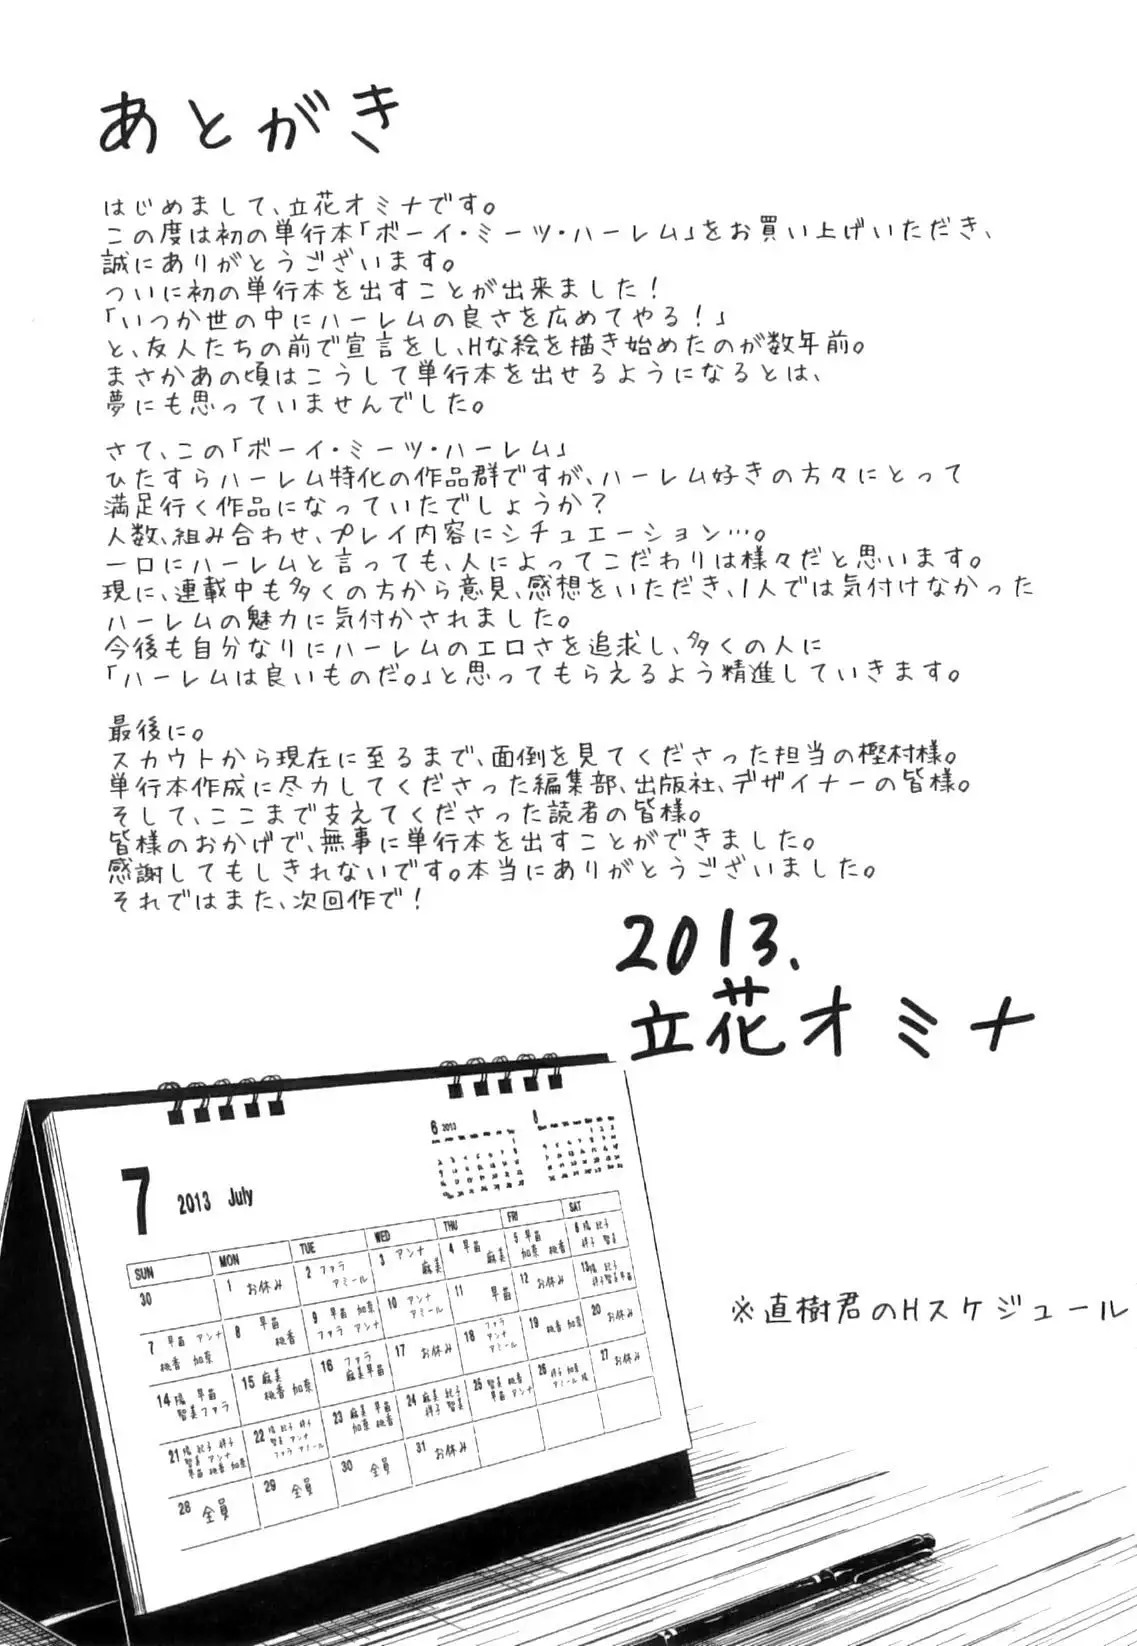 あとがき
はじめまして、立花オミナです。
この度は初の単行本「ボーイ・ミーツ・ハーレム」をお買い上げいただき、
誠にありがとうございます。
ついに初の単行本を出すことが出来ました！
「いつか世の中にハーレムの良さを広めてやる！」
と、友人たちの前で宣言をし、Hな絵を描き始めたのが数年前。
まさかあの頃はこうして単行本を出せるようになるとは、
夢にも思っていませんでした。
さて、この「ボーイ・ミーツ・ハーレム」
ひたすらハーレム特化の作品群ですが、ハーレム好きの方々にとって
満足行く作品になっていたでしょうか？
人数、組み合わせ、プレイ内容にシチュエーション…。
一口にハーレムと言っても、人によってこだわりは様々だと思います。
現に、連載中も多くの方から意見、感想をいただき、1人では気付けなかった
ハーレムの魅力に気付かされました。
今後も自分なりにハーレムのエロさを追求し、多くの人に
「ハーレムは良いものだ。」と思ってもらえるよう精進していきます。
最後に。
スカウトから現在に至るまで、面倒を見てくださった担当の樫村様。
単行本作成に尽力してくださった編集部、出版社、デザイナーの皆様。
そして、ここまで支えてくださった読者の皆様。
皆様のおかげで、無事に単行本を出すことができました。
感謝してもしきれないです。本当にありがとうございました。
それではまた、次回作で！
2013.
立花オミナ
6 2013
8
7 2013 July
SUN MON TUE WED THU FRI SAT
30
1 お休み
2 ファラ アミール
3 アンナ 麻美
4 早苗 麻美
5 早苗 加奈 桃香
6
7 早苗 アンナ 桃香 加奈
8 早苗 桃香
9 早苗 加奈 ファラ アンナ
10 アンナ アミール
11 早苗
12 お休み
13
14 陽 早苗 智美 ファラ
15 麻美 桃香 加奈
16 ファラ 麻美 早苗
17 お休み
18 ファラ アンナ アミール
19 桃香 加奈
20 お休み
21
22
23 麻美 早苗 加奈 桃香
24
25 智美 桃香 早苗 アンナ
26
27 お休み
28 全員
29 全員
30 全員
31 お休み
※直樹君のHスケジュール